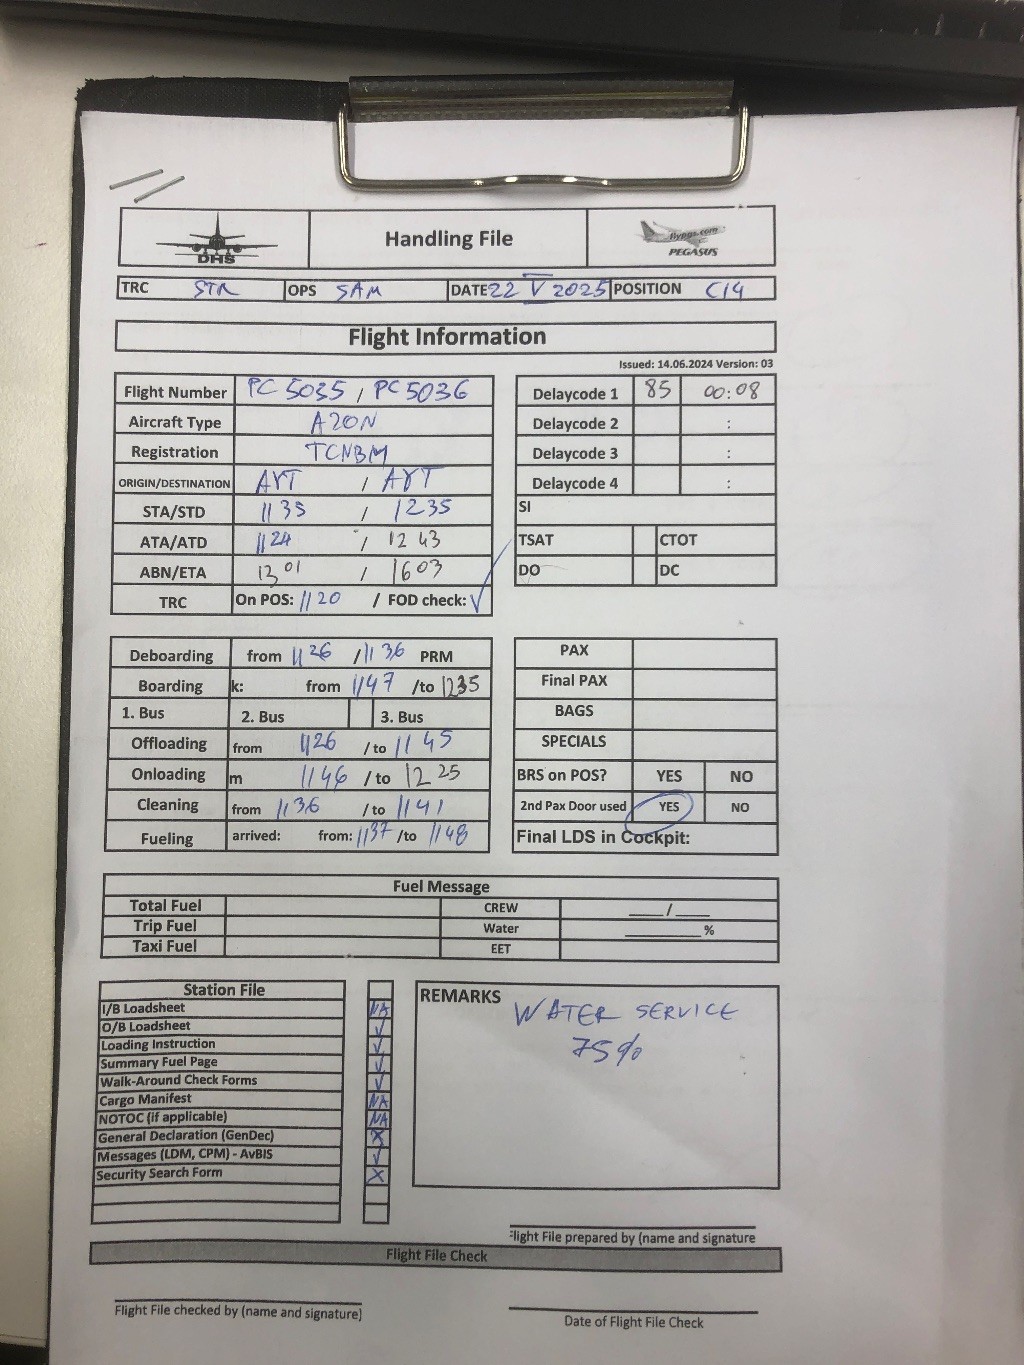 DHS
Handling File
flypgs.com
PEGASUS
TRC STR OPS SAM DATE 22 V 2025 POSITION C14
Flight Information
Issued: 14.06.2024 Version: 03
Flight Number PC 5035 / PC 5036 Delaycode 1 85 00:08
Aircraft Type A20N Delaycode 2 :
Registration TCNBM Delaycode 3 :
ORIGIN/DESTINATION AYT / AYT Delaycode 4 :
STA/STD 1135 / 1235 SI
ATA/ATD 1124 / 1243 TSAT CTOT
ABN/ETA 1301 / 1603 DO DC
TRC On POS: 1120 / FOD check: ✓
Deboarding from 1126 / 1136 PRM PAX
Boarding k: from 1147 /to 1235 Final PAX
1. Bus 2. Bus 3. Bus BAGS
Offloading from 1126 /to 1145 SPECIALS
Onloading m 1146 /to 1225 BRS on POS? YES NO
Cleaning from 1136 /to 1141 2nd Pax Door used YES NO
Fueling arrived: from: 1137 /to 1148 Final LDS in Cockpit:
Fuel Message
Total Fuel CREW ____/____
Trip Fuel Water ________%
Taxi Fuel EET
Station File
I/B Loadsheet NA
O/B Loadsheet ✓
Loading Instruction ✓
Summary Fuel Page ✓
Walk-Around Check Forms ✓
Cargo Manifest NA
NOTOC (if applicable) NA
General Declaration (GenDec) X
Messages (LDM, CPM) - AvBIS ✓
Security Search Form X
REMARKS WATER SERVICE
75%
Flight File prepared by (name and signature
Flight File Check
Flight File checked by (name and signature)
Date of Flight File Check